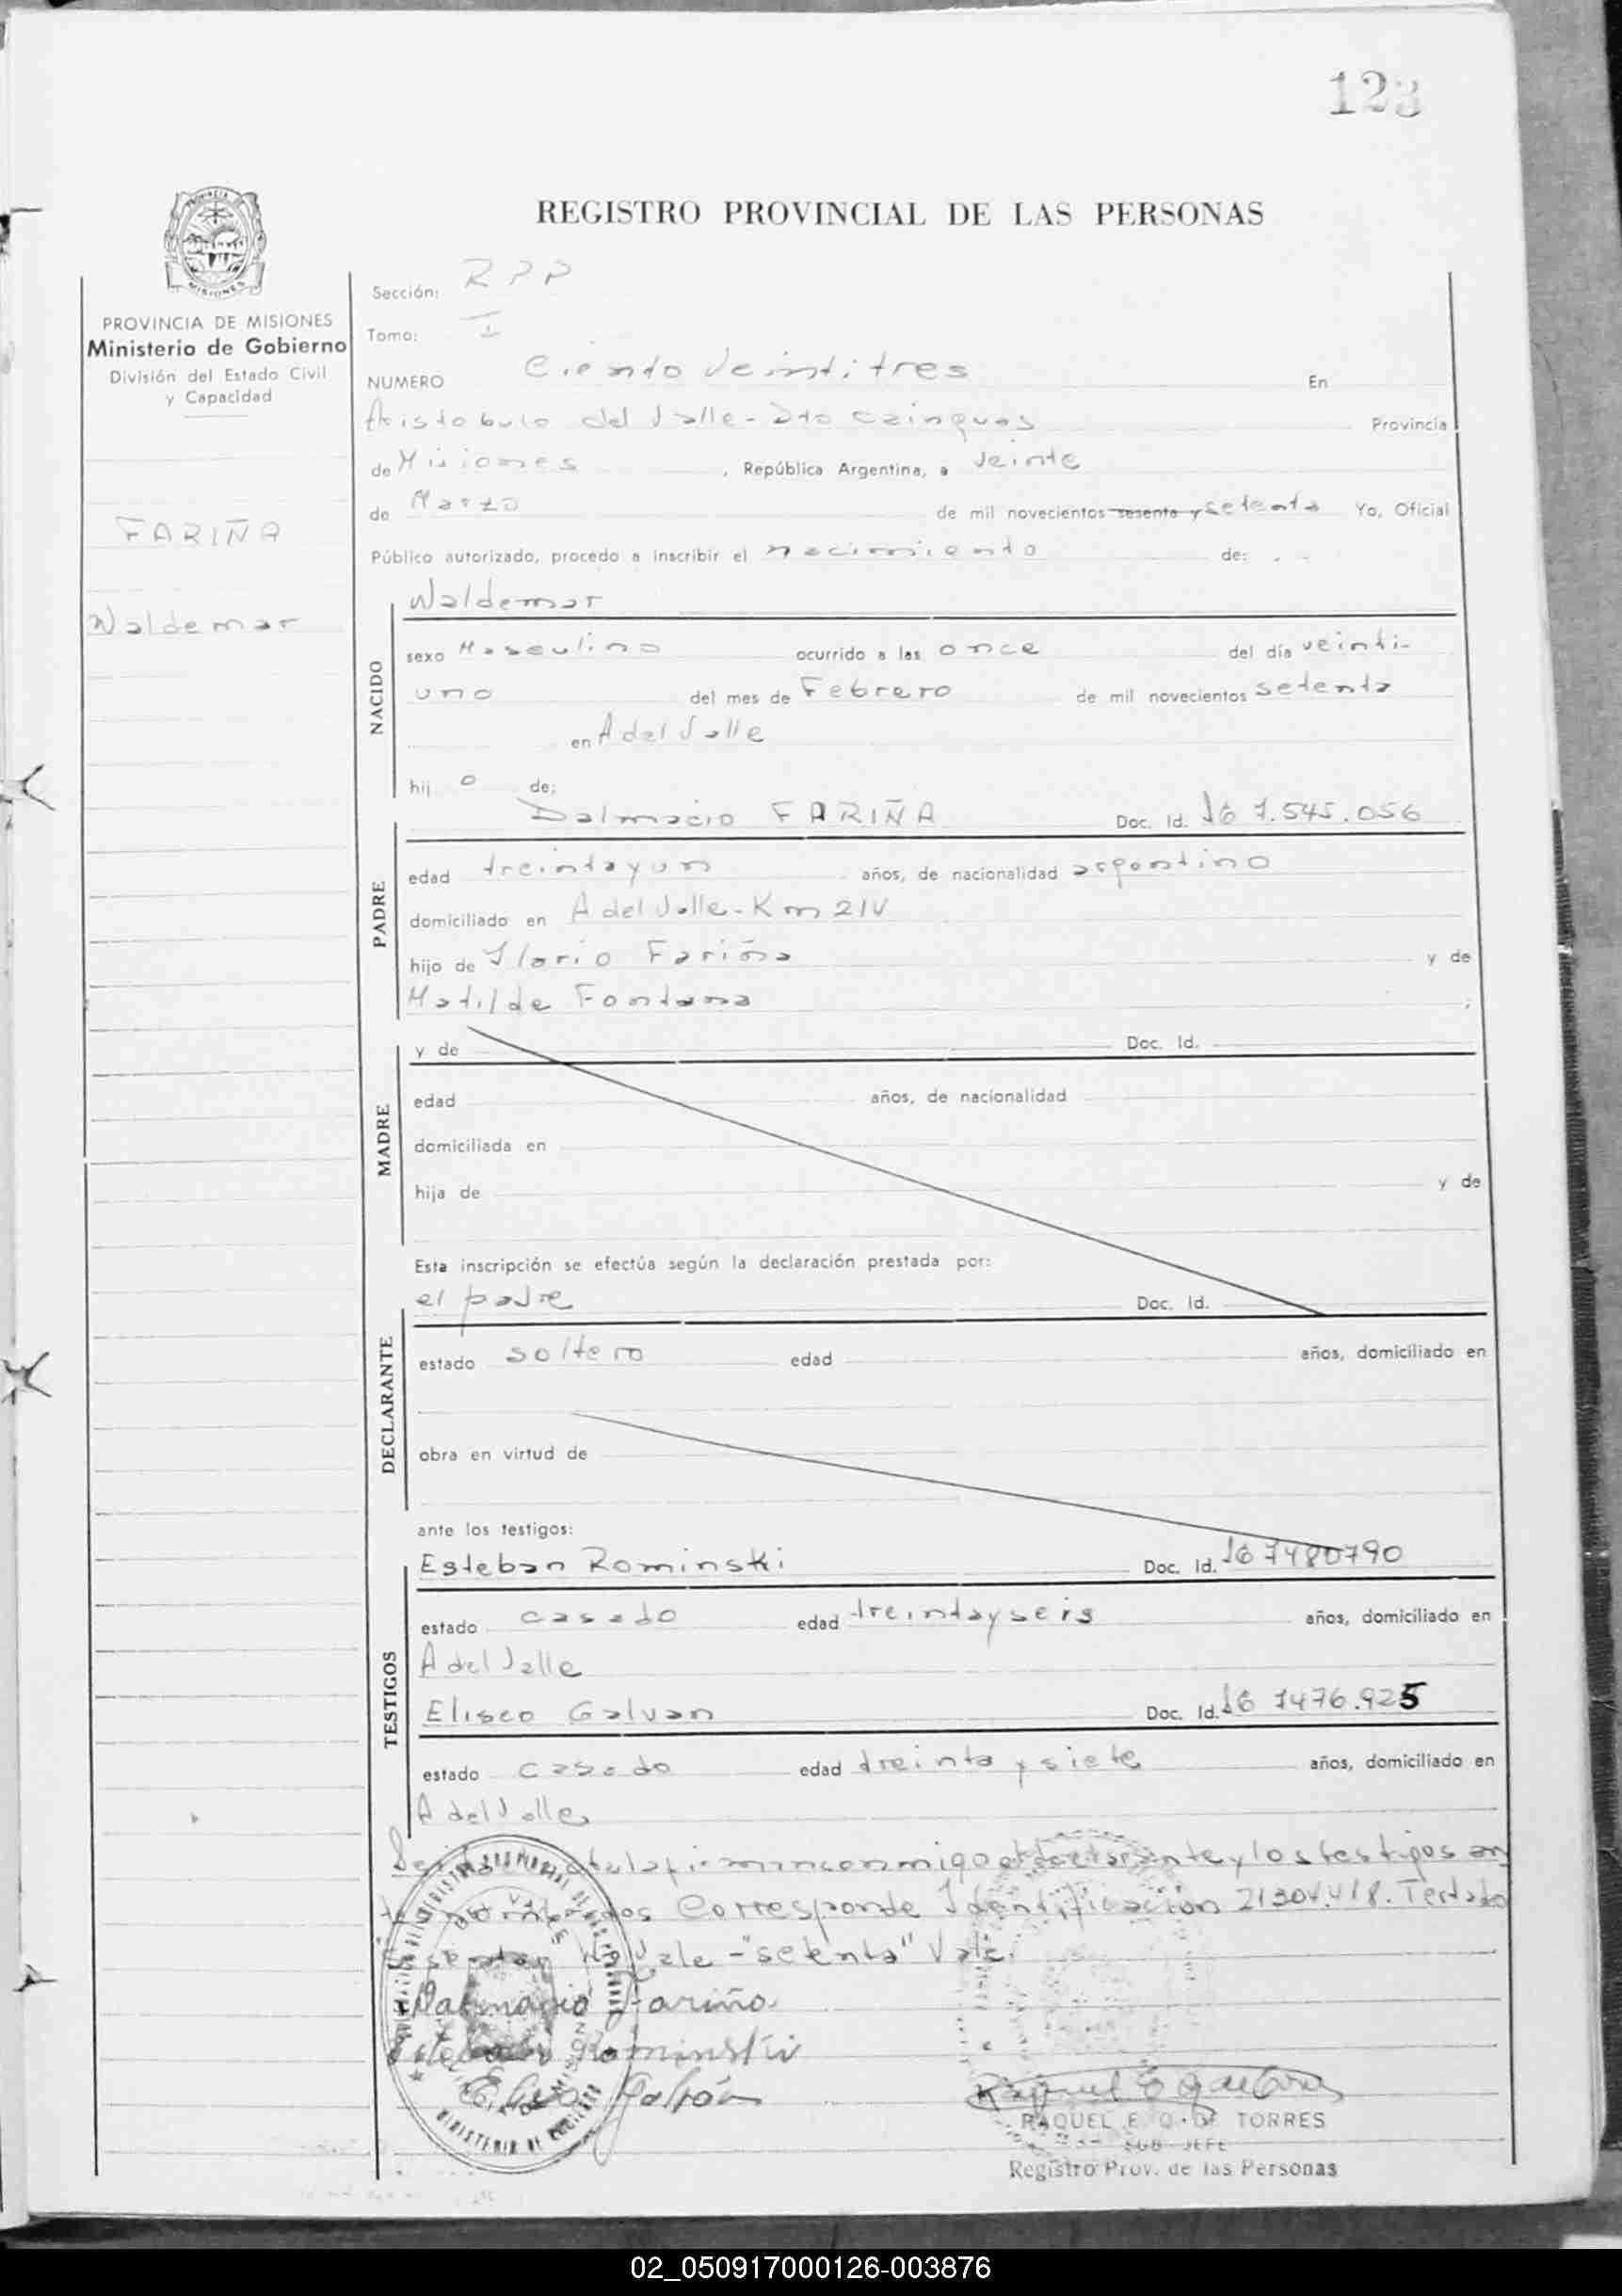 123
REGISTRO PROVINCIAL DE LAS PERSONAS
PROVINCIA DE MISIONES
Ministerio de Gobierno
División del Estado Civil
y Capacidad
FARIÑA
Waldemar
Sección: RPP
Tomo: I
NUMERO Ciento Veintitres En
Aristobulo del Valle - Dto Cainguas Provincia
de Misiones, República Argentina, a Veinte
de Marzo de mil novecientos sesenta y setenta Yo, Oficial
Público autorizado, procedo a inscribir el nacimiento de:
NACIDO
Waldemar
sexo Masculino ocurrido a las once del día veinti-
uno del mes de Febrero de mil novecientos setenta
en A del Valle
hijo de:
PADRE
Dalmacio FARIÑA Doc. Id. 7.545.056
edad treinta y un años, de nacionalidad argentino
domiciliado en A del Valle - Km 214
hijo de Ilario Fariña y de
Matilde Fontana ;
MADRE
y de Doc. Id.
edad años, de nacionalidad
domiciliada en
hija de y de
Esta inscripción se efectúa según la declaración prestada por:
DECLARANTE
el padre Doc. Id.
estado soltero edad años, domiciliado en
obra en virtud de
ante los testigos:
TESTIGOS
Esteban Rominski Doc. Id. 7480790
estado casado edad treinta y seis años, domiciliado en
A del Valle
Eliseo Galvan Doc. Id. 7476.925
estado casado edad treinta y siete años, domiciliado en
A del Valle
acta la firman conmigo el declarante y los testigos
nombrados Corresponde Identificación Testado
Vale - "setenta" Vale.
Dalmacio Fariña
Esteban Rominski
Eliseo Galván
RAQUEL E. Q. DE TORRES
SUB JEFE
Registro Prov. de las Personas
02_050917000126-003876